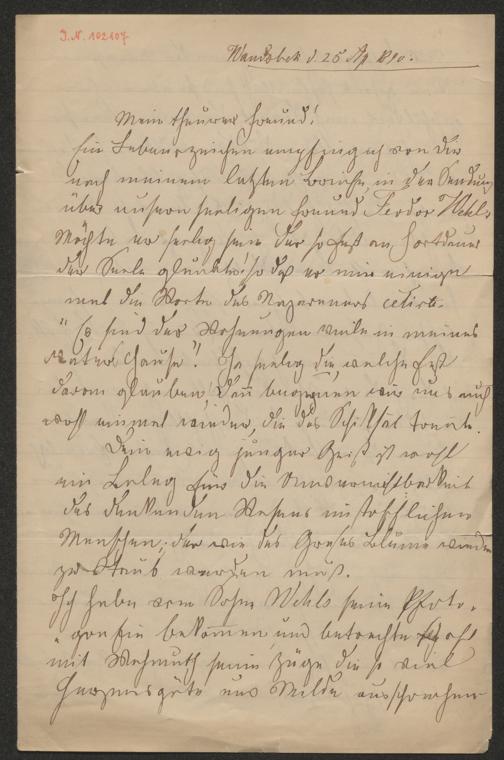 J.N. 102107
Wandsbek d. 25 Ap. 1890.
Mein theurer Freund!
Ein Lebenszeichen empfing ich von Dir
nach meinem letzten Briefe in der Sendung
über unsern seeligen Freund Feodor Wehl.
Möchte er seelig sein der so fest an Fortdauer
der Seele glaubte! so daß er mir einige
mal die Worte des Nazareners citirte.
"Es sind der Wohnungen viele in meines
Vaters Hause"! Ja seelig die welche fest
daran glauben! Denn begegnen wir uns auch
wohl einmal wieder, die das Schiksal trennte.
Dein ewig junger Geist ist wohl
ein Beleg für die Unvernichtbarkeit
des denkenden Wesens im stofflichen
Menschen; der wie des Grases Blume wieder
zu Staub werden muß.
Ich habe vom Sohn Wehls seine Photo-
grafie bekommen, und betrachte oft
mit Wehmuth seine Züge die so viel
Herzensgüte und Milde aussprechen